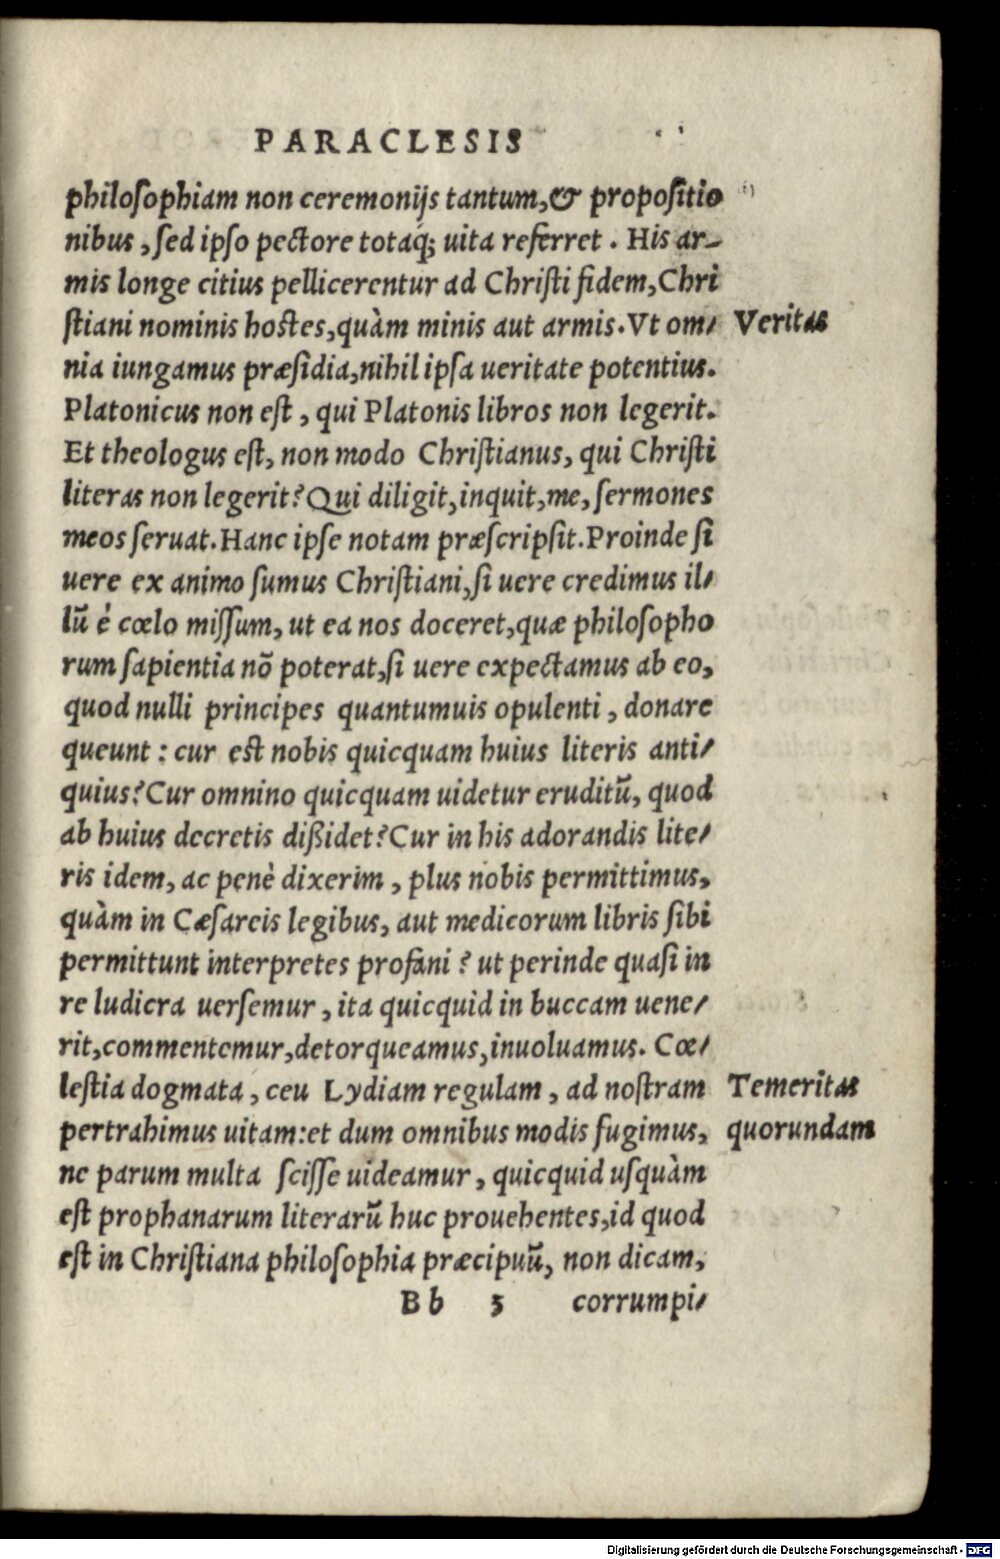 PARACLESIS
philosophiam non ceremonijs tantum, & propositio
nibus, sed ipso pectore totaq́; uita referret. His ar-
mis longe citius pellicerentur ad Christi fidem, Chri
stiani nominis hostes, quàm minis aut armis. Vt om-
Veritas
nia iungamus præsidia, nihil ipsa ueritate potentius.
Platonicus non est, qui Platonis libros non legerit.
Et theologus est, non modo Christianus, qui Christi
literas non legerit? Qui diligit, inquit, me, sermones
meos seruat. Hanc ipse notam præscripsit. Proinde si
uere ex animo sumus Christiani, si uere credimus il-
lū è cœlo missum, ut ea nos doceret, quæ philosopho
rum sapientia nō poterat, si uere expectamus ab eo,
quod nulli principes quantumuis opulenti, donare
queunt: cur est nobis quicquam huius literis anti-
quius? Cur omnino quicquam uidetur eruditū, quod
ab huius decretis dißidet? Cur in his adorandis lite-
ris idem, ac penè dixerim, plus nobis permittimus,
quàm in Cæsareis legibus, aut medicorum libris sibi
permittunt interpretes profani? ut perinde quasi in
re ludicra uersemur, ita quicquid in buccam uene-
rit, commentemur, detorqueamus, inuoluamus. Cœ-
lestia dogmata, ceu Lydiam regulam, ad nostram
Temeritas
pertrahimus uitam: et dum omnibus modis fugimus,
quorundam
ne parum multa scisse uideamur, quicquid usquàm
est prophanarum literarū huc prouehentes, id quod
est in Christiana philosophia præcipuū, non dicam,
Bb 3 corrumpi-
Digitalisierung gefördert durch die Deutsche Forschungsgemeinschaft - DFG